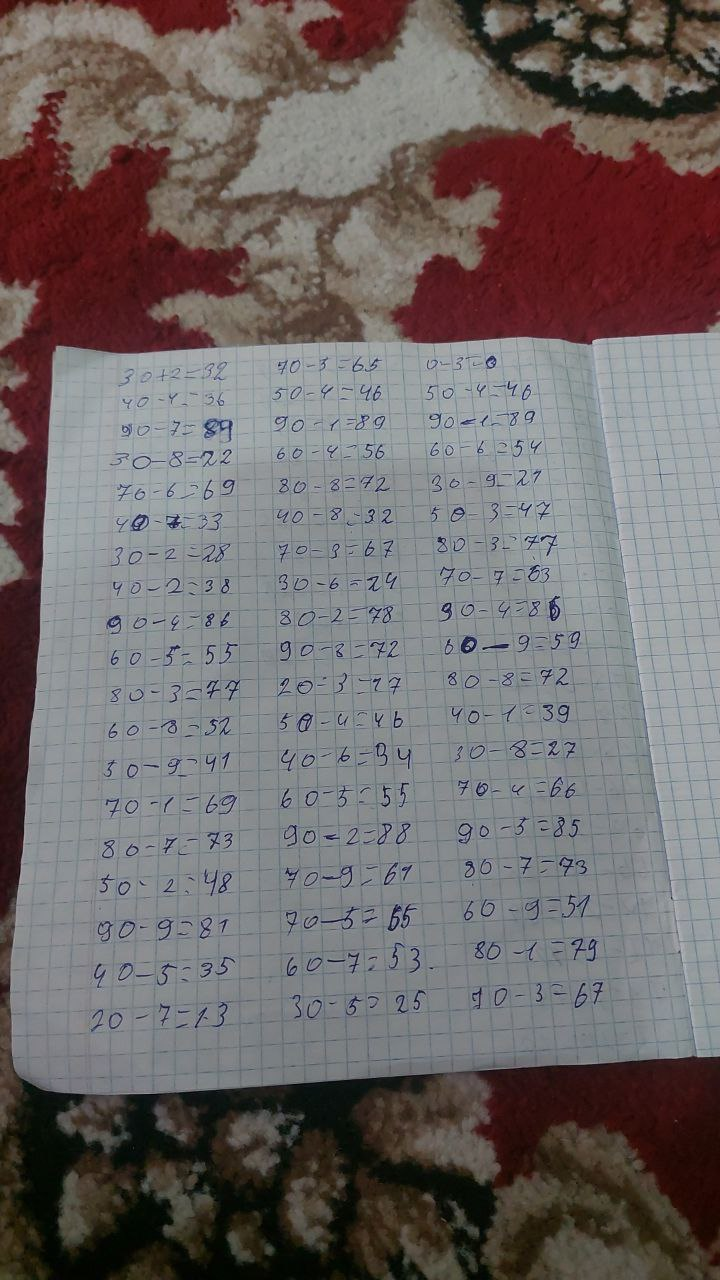 30+2=32 70-3=65 0-3=0
40-4=36 50-4=46 50-4=46
90-7=89 90-1=89 90-1=89
30-8=22 60-4=56 60-6=54
70-6=69 80-8=72 30-9=21
40-7=33 40-8=32 50-3=47
30-2=28 70-3=67 80-3=77
40-2=38 30-6=24 70-7=63
90-4=86 80-2=78 90-4=86
60-5=55 90-8=72 60-9=59
80-3=77 20-3=17 80-8=72
60-8=52 50-4=46 40-1=39
50-9=41 40-6=34 30-8=27
70-1=69 60-5=55 70-4=66
80-7=73 90-2=88 90-5=85
50-2=48 70-9=61 80-7=73
90-9=81 70-5=65 60-9=51
40-5=35 60-7=53. 80-1=79
20-7=13 30-5=25 70-3=67